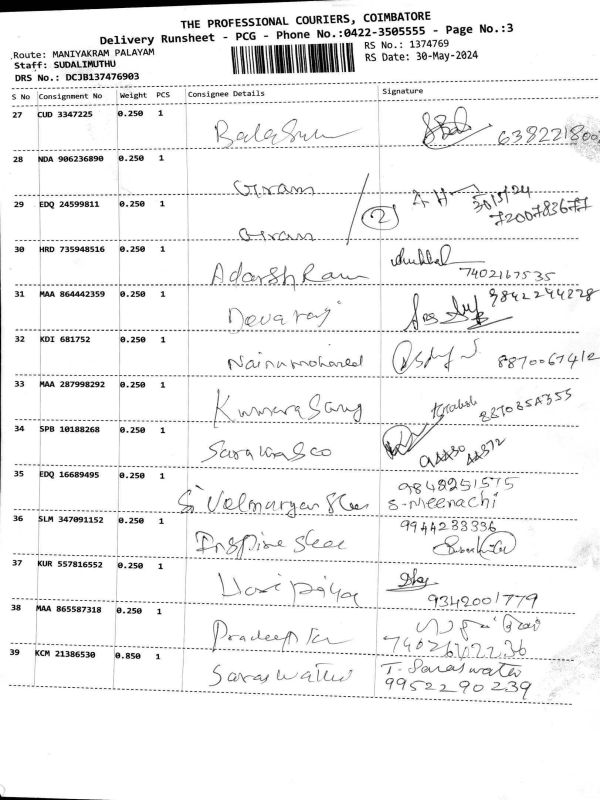 THE PROFESSIONAL COURIERS, COIMBATORE
Delivery Runsheet - PCG - Phone No.:0422-3505555 - Page No.:3
Route: MANIYAKRAM PALAYAM
RS No.: 1374769
Staff: SUDALIMUTHU
RS Date: 30-May-2024
DRS No.: DCJB137476903
S No Consignment No Weight PCS Consignee Details Signature
27 CUD 3347225 0.250 1
28 NDA 906236890 0.250 1 Giram
29 EDQ 24599811 0.250 1 Giram 2 30/5/24
7200783677
30 HRD 735948516 0.250 1 Adarsh Ram 7402167535
31 MAA 864442359 0.250 1 Devaraj 9842244228
32 KDI 681752 0.250 1 Nainamohamed 8870067412
33 MAA 287998292 0.250 1
34 SPB 10188268 0.250 1
35 EDQ 16689495 0.250 1 9843251515
S. Meenachi
36 SLM 347091152 0.250 1 9944233336
37 KUR 557816552 0.250 1 Haripriya 9342001779
38 MAA 865587318 0.250 1 Pradeep
39 KCM 21386530 0.850 1 Saraswathi T. Saraswathi
9952290239